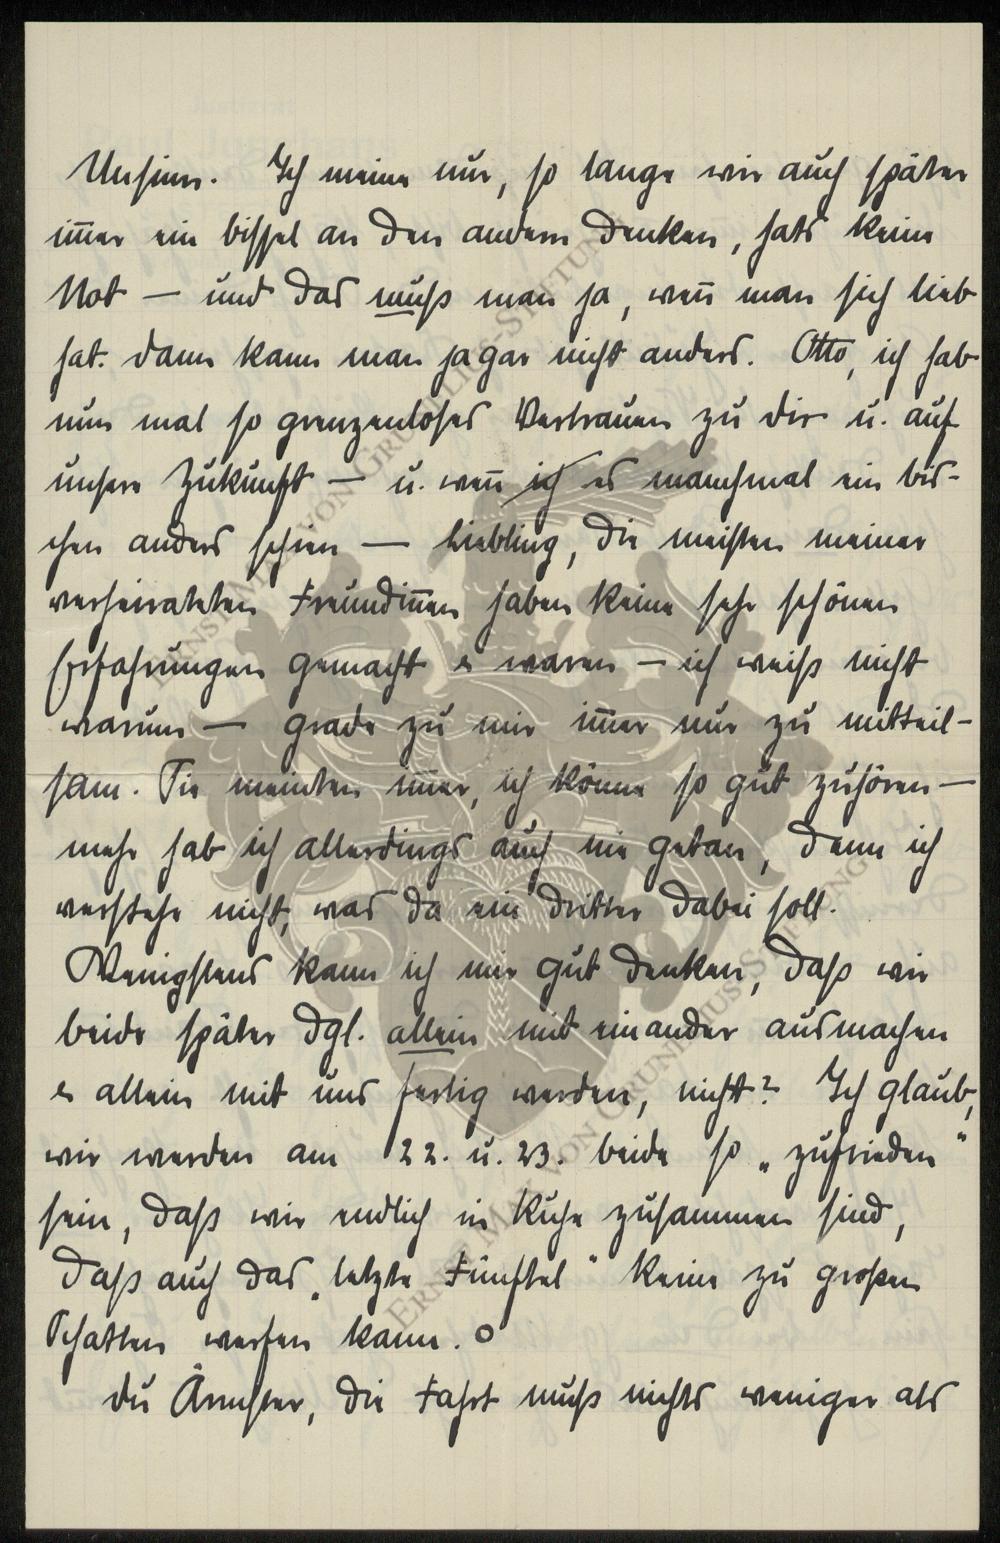 Unsinn. Ich meine nur, so lange wir auch später
im̅er ein bissel an den andern denken, hats keine
Not — und das muß man ja, wen̅ man sich lieb
hat. dann kann man ja gar nicht anders. Otto, ich hab
nun mal so grenzenloses Vertrauen zu dir u. auf
unsere Zukunft — u. wen̅ ich es manchmal ein bis-
chen anders schien — Liebling, die meisten meiner
verheirateten Freundin̅en haben keine sehr schönen
Erfahrungen gemacht & waren — ich weiß nicht
warum — grade zu mir im̅er nur zu mitteil-
sam. Sie meinten im̅er, ich könne so gut zuhören —
mehr hab ich allerdings auch nie getan, denn ich
verstehe nicht, was da ein dritter dabei soll.
Wenigstens kann ich mir gut denken, daß wir
beide später dgl. allein mit einander ausmachen
& allein mit uns fertig werden, nicht? Ich glaub,
wir werden am 22. u. 23. beide so „zufrieden"
sein, daß wir endlich in Ruhe zusammen sind,
daß auch das „letzte Fünftel" keine zu großen
Schatten werfen kann. o
du Ärmster, die Fahrt muß nichts weniger als
ERNST MAX VON GRUNELIUS-STIFTUNG
ERNST MAX VON GRUNELIUS-STIFTUNG